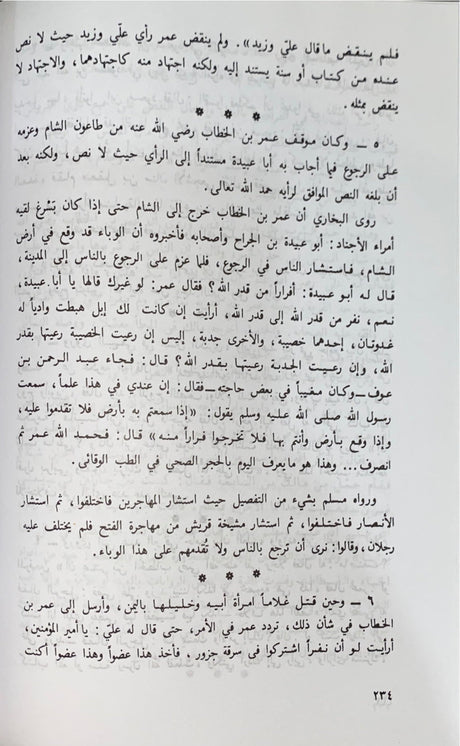 فلم ينقض ما قال عليّ وزيد». ولم ينقض عمر رأي عليّ وزيد حيث لا نص
عنده من كتاب أو سنة يستند إليه ولكنه اجتهاد منه كاجتهادهما، والاجتهاد لا
ينقض بمثله.
* * *
٥ ــ وكان موقف عمر بن الخطاب رضي الله عنه من طاعون الشام وعزمه
على الرجوع فيما أجاب به أبا عبيدة مستنداً إلى الرأي حيث لا نص، ولكنه بعد
أن بلغه النص الموافق لرأيه حمد الله تعالى.
روى البخاري أن عمر بن الخطاب خرج إلى الشام حتى إذا كان بَسْرغ لقيه
أمراء الأجناد: أبو عبيدة بن الجراح وأصحابه فأخبروه أن الوباء قد وقع في أرض
الشام، فاستشار الناس في الرجوع، فلما عزم على الرجوع بالناس إلى المدينة،
قال له أبو عبيدة: أفراراً من قدر الله؟ فقال عمر: لو غيرك قالها يا أبا عبيدة،
نعم، نفر من قدر الله إلى قدر الله، أرأيت إن كانت لك إبل هبطت وادياً له
غدوتان، إحدهما خصيبة، والأخرى جدبة، إليس إن رعيت الخصيبة رعيتها بقدر
الله، وإن رعيت الجدبة رعيتها بقدر الله؟ قال: فجاء عبد الرحمن بن
عوف ــ وكان مغيباً في بعض حاجته ــ فقال: إن عندي في هذا علماً، سمعت
رسول الله صلى الله عليه وسلم يقول: «إذا سمعتم به بأرض فلا تقدموا عليه،
وإذا وقع بأرض وأنتم بها فلا تخرجوا فراراً منه» قال: فحمد الله عمر ثم
انصرف... وهذا هو ما يعرف اليوم بالحجر الصحي في الطب الوقائى.
ورواه مسلم بشيء من التفصيل حيث استشار المهاجرين فاختلفوا، ثم استشار
الأنصار فاختلفوا، ثم استشار مشيخة قريش من مهاجرة الفتح فلم يختلف عليه
رجلان، وقالوا: نرى أن ترجع بالناس ولا تُقدمهم على هذا الوباء.
* * *
٦ ــ وحين قتل غلاماً امرأة أبيه وخليلها باليمن، وأرسل إلى عمر بن
الخطاب في شأن ذلك، تردد عمر في الأمر، حتى قال له عليّ: يا أمير المؤمنين،
أرأيت لو أن نفراً اشتركوا في سرقة جزور، فأخذ هذا عضواً وهذا عضواً أكنت
٢٣٤